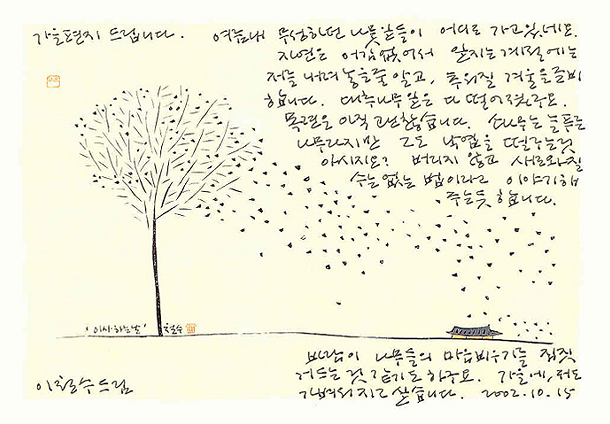 가을편지 드립니다. 여름내 무성하던 나뭇잎들이 어디로 가고있네요.
자연은 어김없어서 잎지는계절에는
저를 내려놓을줄알고, 추워질 겨울을준비
합니다. 대추나무잎은 다 떨어졌구요.
목련은 아직 괜찮습니다. 소나무는 늘푸른
나무라지만 그도 낙엽을 떨구는것
아시지요? 버리지 않고 새로와질
수는 없는 법이라고 이야기해
주는듯 합니다.
'이사하는날' 철수
바람이 나무들의 마음비우기를 짐짓
거드는 것 같기도 하구요. 가을에, 저도
가벼워지고 싶습니다. 2002.10.15
이철수드림